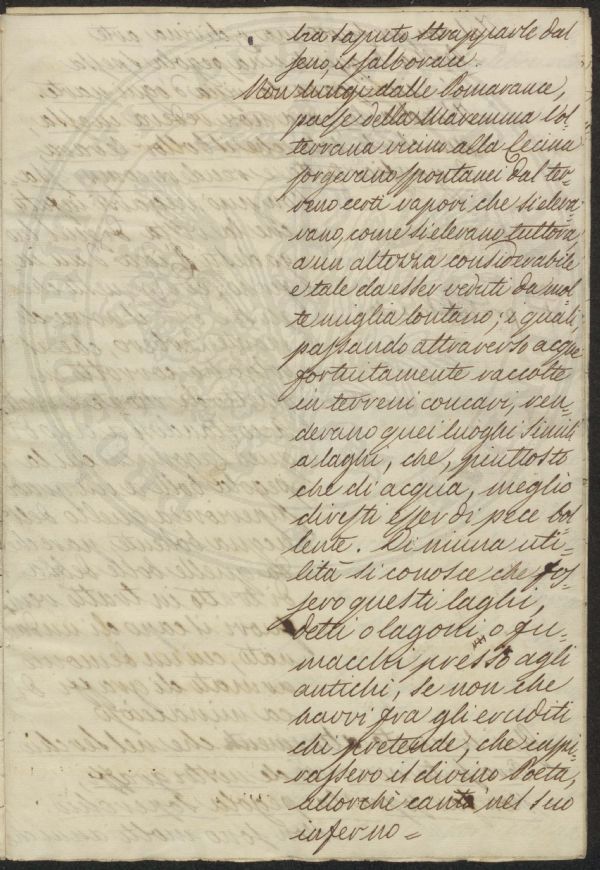 ha saputo strapparle dal
seno, il Salborace.
Non lungi dalle Pomarance,
paese della Maremma Vol-
terrana vicino alla Cecina
sorgevano spontanei dal ter-
reno certi vapori che si eleva-
vano, come si elevano tuttora,
a un altezza considerabile
e tale da esser veduti da mol-
te miglia lontano; i quali,
passando attraverso acque
fortuitamente raccolte
in terreni concavi, ren-
devano quei luoghi simili
a laghi, che, piuttosto
che di acqua, meglio
diresti esser di pece bol-
lente. Di niuna uti-
lità si conosce che fos-
sero questi laghi,
detti o lagoni o fu-
macchi presso agli
antichi, se non che
havvi fra gli eruditi
chi pretende, che inspi-
rassero il divino Poeta,
allorchè cantò nel suo
inferno =